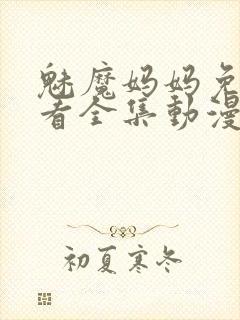 魅魔妈妈免
看全集動漫
初夏寒冬